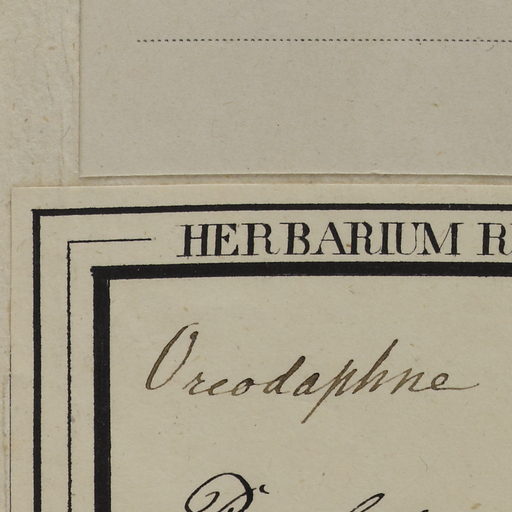 HERBARIUM
Oreodaphne